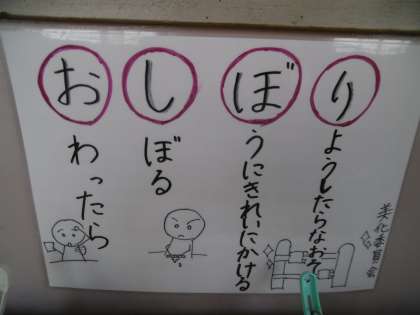 おわったら
しぼる
ぼうにきれいにかける
りようしたらなおそ
美化委員会